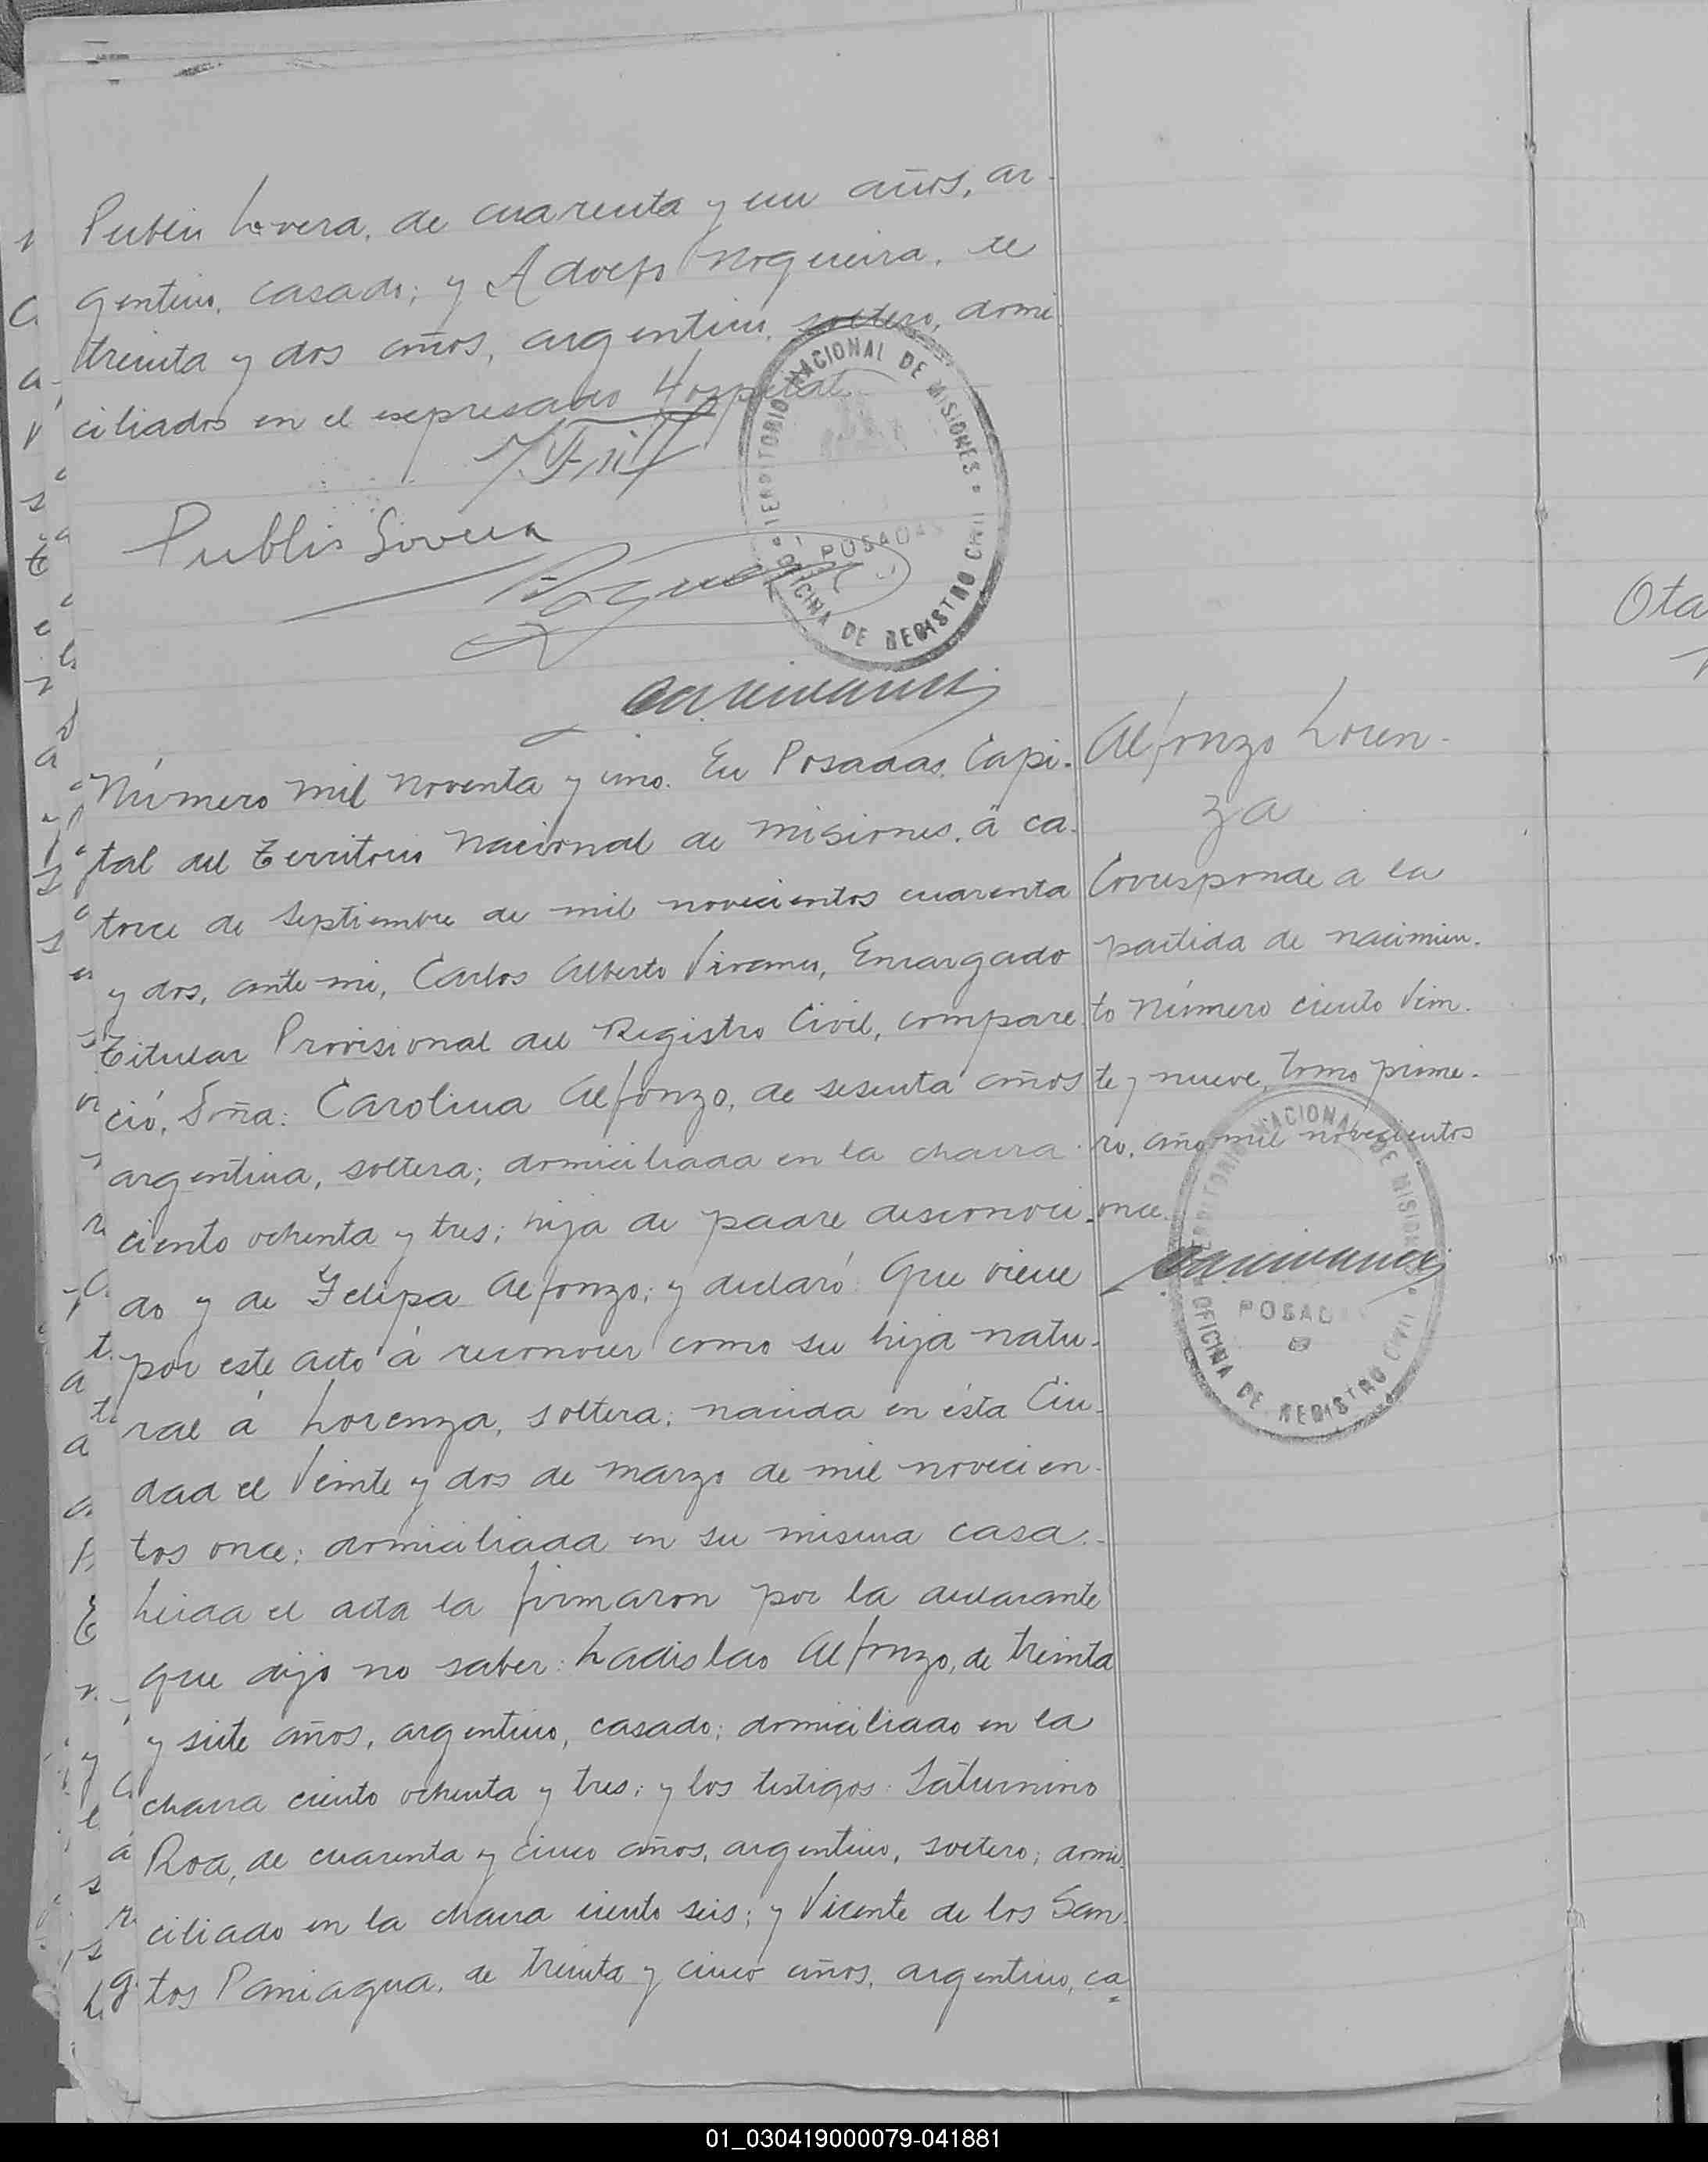 Lovera, de cuarenta y un años, ar-
gentino, casado; y Adolfo Nogueira, de
treinta y dos años, argentino, soltero, domi
ciliados en el expresado Hospital.
Publio Lovera
TERRITORIO NACIONAL DE MISIONES
POSADAS
OFICINA DE REGISTRO CIVIL
Número mil noventa y uno. En Posadas, Capi-
tal del Territorio Nacional de Misiones, á ca-
torce de Septiembre de mil novecientos cuarenta
y dos, ante mi, Carlos Alberto Vivanco, Encargado
Titular Provisional del Registro Civil, compare-
ció, Doña: Carolina Alfonzo, de sesenta años
argentina, soltera; domiciliada en la chacra
ciento ochenta y tres; hija de padre desconoci-
do y de Felipa Alfonzo; y declaró: Que viene
por este acto á reconocer como su hija natu-
ral á Lorenza, soltera; nacida en ésta Ciu-
dad el Veinte y dos de marzo de mil novecien-
tos once; domiciliada en su misma casa.-
Leida el acta la firmaron por la declarante
que dijo no saber: Ladislao Alfonzo, de treinta
y siete años, argentino, casado; domiciliado en la
chacra ciento ochenta y tres; y los testigos: Saturnino
Roa, de cuarenta y cinco años, argentino, soltero; domi-
ciliado en la chacra ciento seis; y Vicente de los San-
tos Paniagua, de treinta y cinco años, argentino, ca=
Alfonzo Loren-
za
Corresponde a la
partida de nacimien-
to número ciento Vein-
te y nueve, tomo prime-
ro, año mil novecientos
once.
TERRITORIO NACIONAL DE MISIONES
POSADAS
OFICINA DE REGISTRO CIVIL
Ota
01_030419000079-041881